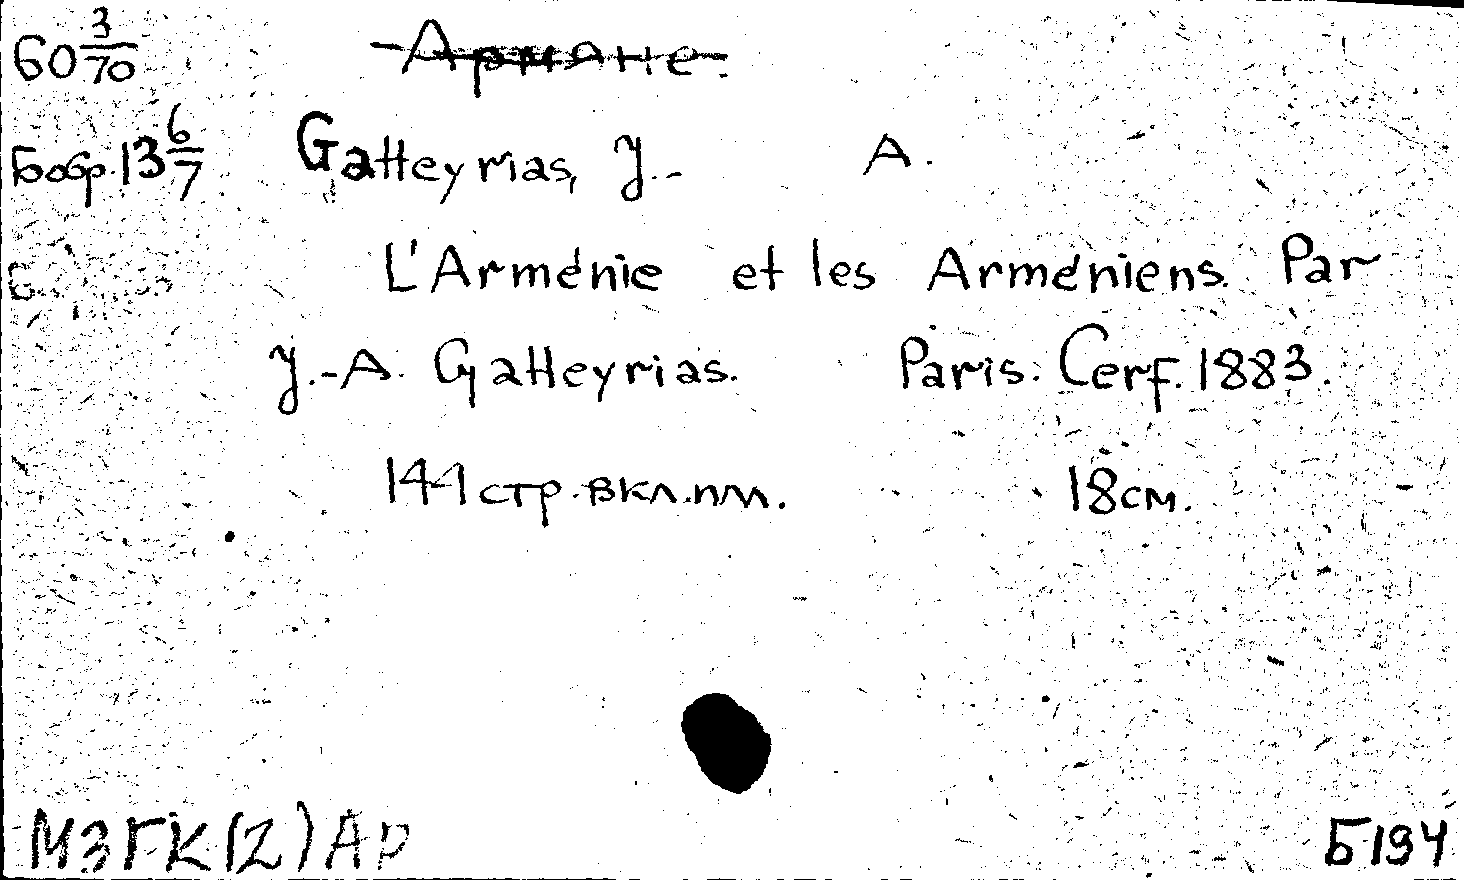 60 3/70 Армяне.
Бобр. 13 6/7 Gatteyrias, J.- A.
L'Arménie et les Arméniens. Par
J.-A. Gatteyrias. Paris. Cerf. 1883.
144 стр. вкл. пл. 18 см.
МЗГК(2)Ар Б194